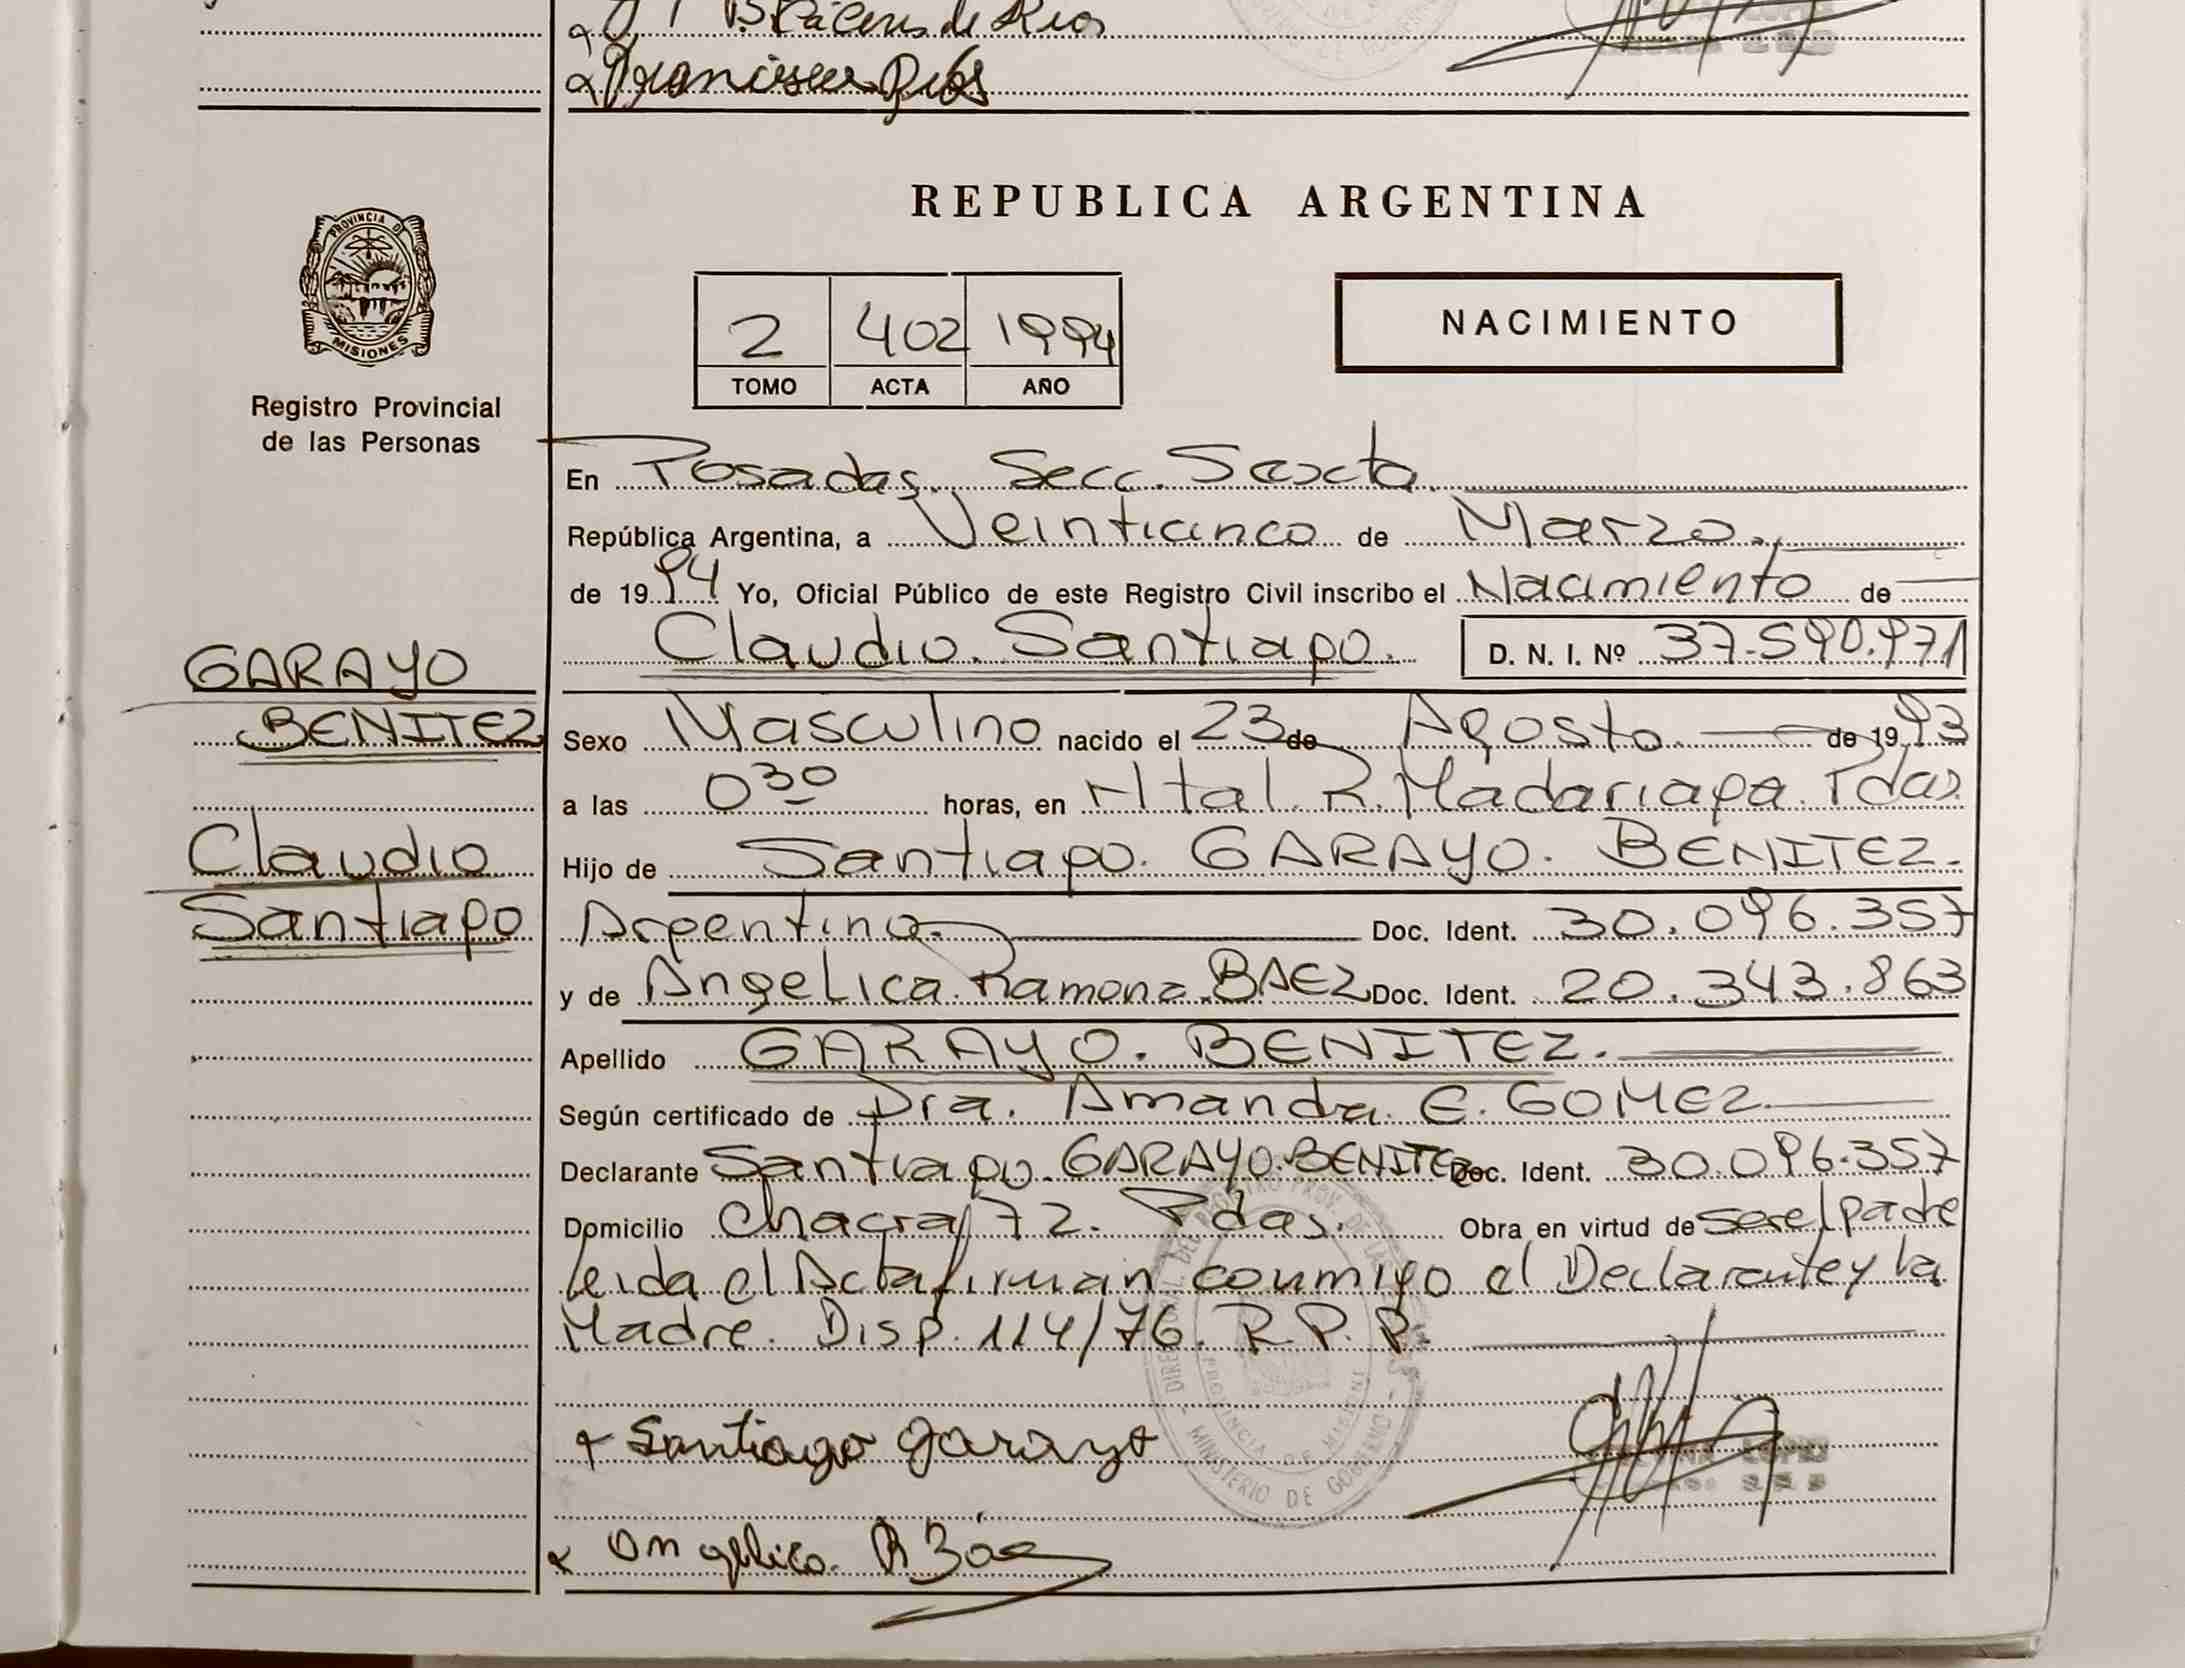 B. Cáceres de Rios
Francisco Rios
REPUBLICA ARGENTINA
PROVINCIA DE
MISIONES
Registro Provincial
de las Personas
2 402 1994
TOMO ACTA AÑO
NACIMIENTO
En Posadas. Secc. Sexta
República Argentina, a Veinticinco de Marzo
de 1994 Yo, Oficial Público de este Registro Civil inscribo el Nacimiento de
Claudio Santiago. D. N. I. Nº 37.590.971
GARAYO
BENITEZ
Claudio
Santiago
Sexo Masculino nacido el 23 de Agosto de 1993
a las 0 30 horas, en Htal. R. Madariaga. Pdas.
Hijo de Santiago. GARAYO. BENITEZ.
Argentino. Doc. Ident. 30.096.357
y de Angelica Ramona BAEZ Doc. Ident. 20.343.863
Apellido GARAYO. BENITEZ.
Según certificado de Dra. Amanda E. GOMEZ
Declarante Santiago. GARAYO. BENITEZ Doc. Ident. 30.096.357
Domicilio Chacra 72. Pdas. Obra en virtud de ser el padre
leida el Acta firman conmigo el Declarante y la
Madre. Disp. 114/76. R.P.P.
Santiago Garayo
Angelica R Báez
MINISTERIO DE GOBIERNO
PROVINCIA DE MISIONES
LOPES